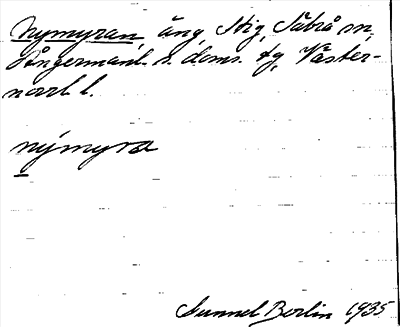 Nymyran, äng, Stig, Säbrå sn,
Ångermanl. s. doms. fg, Väster-
norrl. l.
nýmyra
Gunnel Berlin 1935